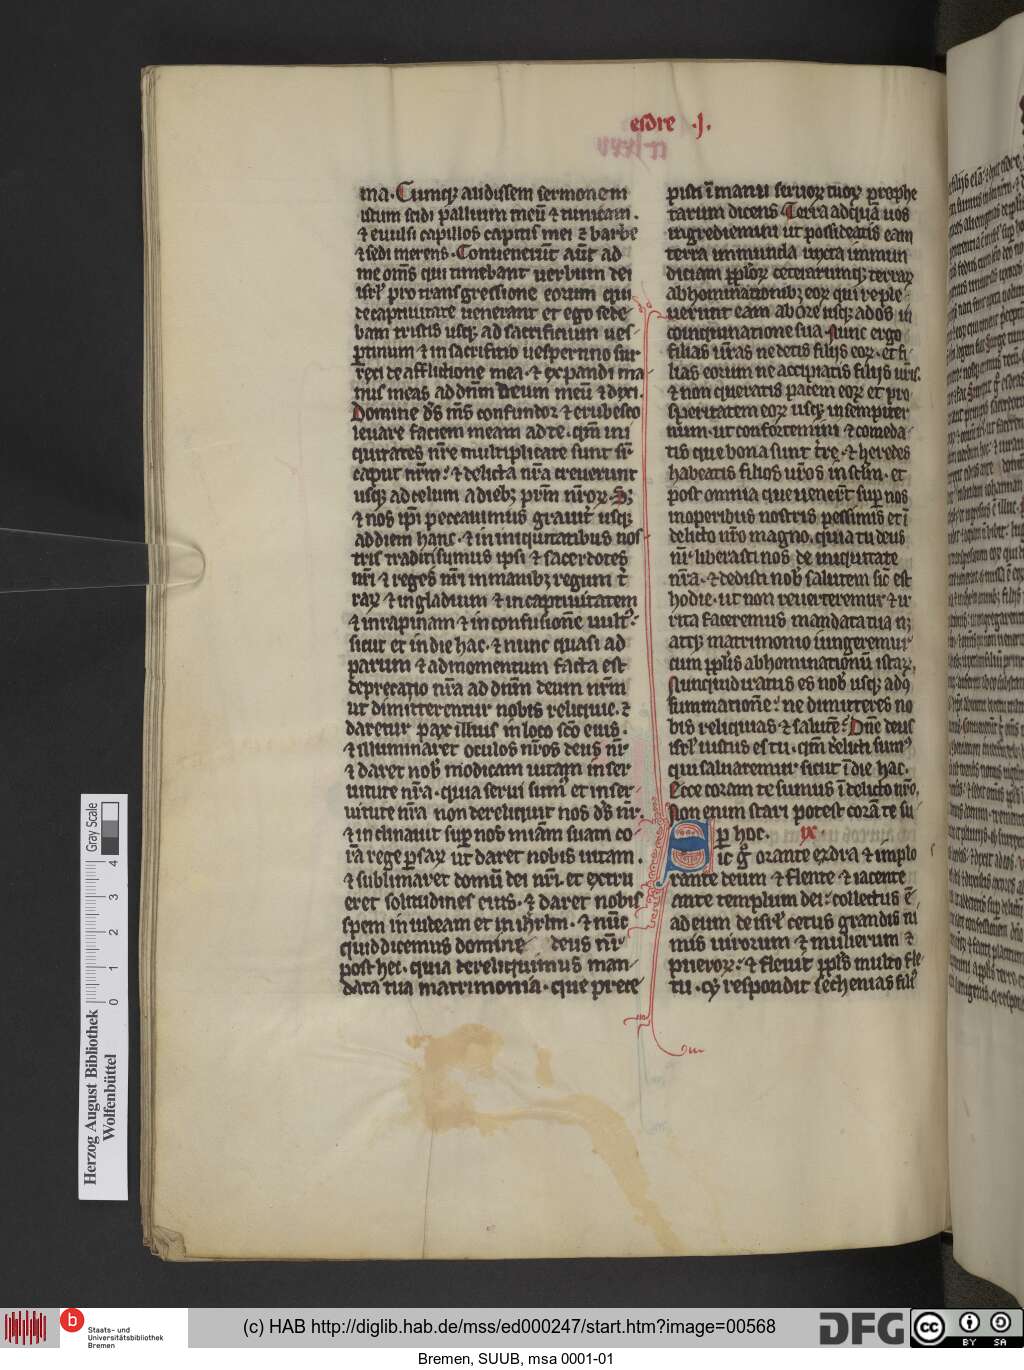 esdre .J.
ma. Cumqꝫ audissem sermonem
istum scidi pallium meū ⁊ tunicam.
⁊ euulsi capillos capitis mei ⁊ barbe
⁊ sedi merens. Conuenerūt aūt ad
me om̄s qui timebant uerbum dei
isrl̄ pro transgressione eorum qui
de captiuitate uenerant et ego sede
bam tristis usqꝫ ad sacrificium ues-
ꝑtinum ⁊ in sacrificio uespertino sur
rexi de afflictione mea. ⁊ expandi ma
nus meas ad dn̄m deum meū ⁊ dixi.
Domine ds̄ ms̄ confundor ⁊ erubesco
leuare faciem meam ad te. qm̄ ini
quitates nr̄e multiplicate sunt sr̄
caput nr̄m: ⁊ delicta nr̄a creuerunt
usqꝫ ad celum a diebꝫ prm̄ nr̄oꝝ. Sꝫ
⁊ nos ip̄i peccauimus grauit̄ usqꝫ
ad diem hanc. ⁊ in iniquitatibus nos
tris traditi sumus ipsi ⁊ sacerdotes
nr̄i ⁊ reges nr̄i in manibꝫ regum t̄
raꝝ ⁊ in gladium ⁊ in captiuitatem
⁊ in rapinam ⁊ in confusione uult᷒:
sicut et in die hac. ⁊ nunc quasi ad
parum ⁊ ad momentum facta est
deprecatio nr̄a ad dn̄m deum nr̄m
ut dimitterentur nobis reliquie. ⁊
daretur pax illius in loco scō eius.
⁊ illuminaret oculos nr̄os deus nr̄
⁊ daret nob̄ modicam uitam in ser
uitute nr̄a. quia serui sum᷒ et in ser-
uitute nr̄a non dereliquit nos ds̄ nr̄.
⁊ inclinauit suꝑ nos miām suam co-
rā rege ꝑsaꝝ ut daret nobis uitam.
⁊ sublimaret domū dei nr̄i. et extru
eret solitudines eius. ⁊ daret nobis
spem in iudeam et in ihrlm̄. ⁊ nūc
quid dicemus domine deus nr̄
post hec. quia dereliquimus man-
data tua matrimonia. que prece
pisti ī manu seruoꝝ tuoꝝ prophe
tarum dicens Terra ad quā uos
ingredimini ut possideatis eam
terra immunda iuxta immun
diciam pp̄loꝝ ceterarumqꝫ terraꝝ
abhominationibꝫ eoꝝ qui reple-
uerunt eam ab ore usqꝫ ad os in
coinquinatione sua. Nunc ergo
filias ur̄as ne detis filijs eoꝝ. et fi-
lias eorum ne accipiatis filijs uris.
⁊ non queratis pacem eoꝝ et pro-
speritatem eoꝝ usqꝫ in sempiter
num. ut confortemini ⁊ comeda-
tis que bona sunt t̄re. ⁊ heredes
habeatis filios ur̄os in scl̄m. et
post omnia que uener̄t suꝑ nos
in operibus nostris pessimis et ī
delicto nr̄o magno. quia tu deus
nr̄ liberasti nos de iniquitate
nr̄a. ⁊ dedisti nob̄ salutem sic̄ est
hodie. ut non reuerteremur ⁊ ir
rita faceremus mandata tua nꝫ
atqꝫ matrimonio iungeremur
cum pp̄lis abhominationū istaꝝ.
Nunquid iratus es nob̄ usqꝫ ad ꝯ
summationē: ne dimitteres no
bis reliquias ⁊ salutē: Dn̄e deus
isrl̄ iustus es tu. qm̄ delicti sum᷒
qui saluaremur sicut ī die hac.
Ecce coram te sumus ī delicto nr̄o.
Non enim stari potest corā te su
ꝑ hoc. ix.
Sic g̊ orante ezdra ⁊ implo
rante deum ⁊ flente ⁊ iacente
ante templum dei: collectus ē
ad eum de isrl̄ cetus grandis ni
mis uirorum ⁊ mulierum ⁊
pueroꝝ: ⁊ fleuit pp̄ls multo fle-
tu. Et respondit sechenias fili᷒
Herzog August Bibliothek
Wolfenbüttel
0 1 2 3 4
Gray Scale
b Staats- und
Universitätsbibliothek
Bremen
(c) HAB http://diglib.hab.de/mss/ed000247/start.htm?image=00568
DFG
cc BY SA
Bremen, SUUB, msa 0001-01